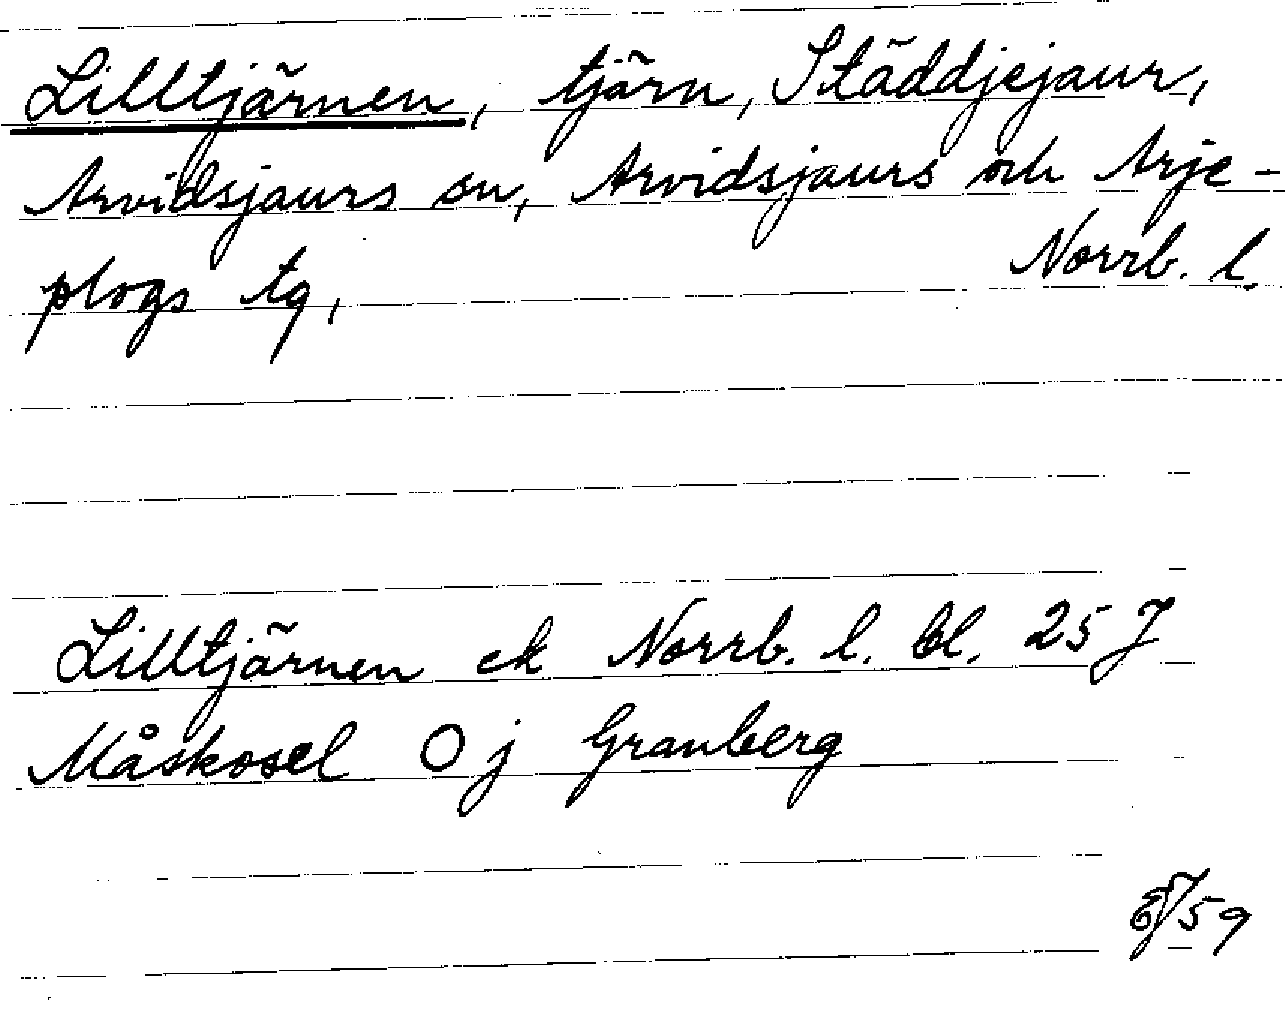 Lilltjärnen, tjärn, Städdjejaur,
Arvidsjaurs sn, Arvidsjaurs och Arje-
plogs tg, Norrb. l.
Lilltjärnen ek Norrb. l. bl. 25 J
Måskosel O j Granberg
59